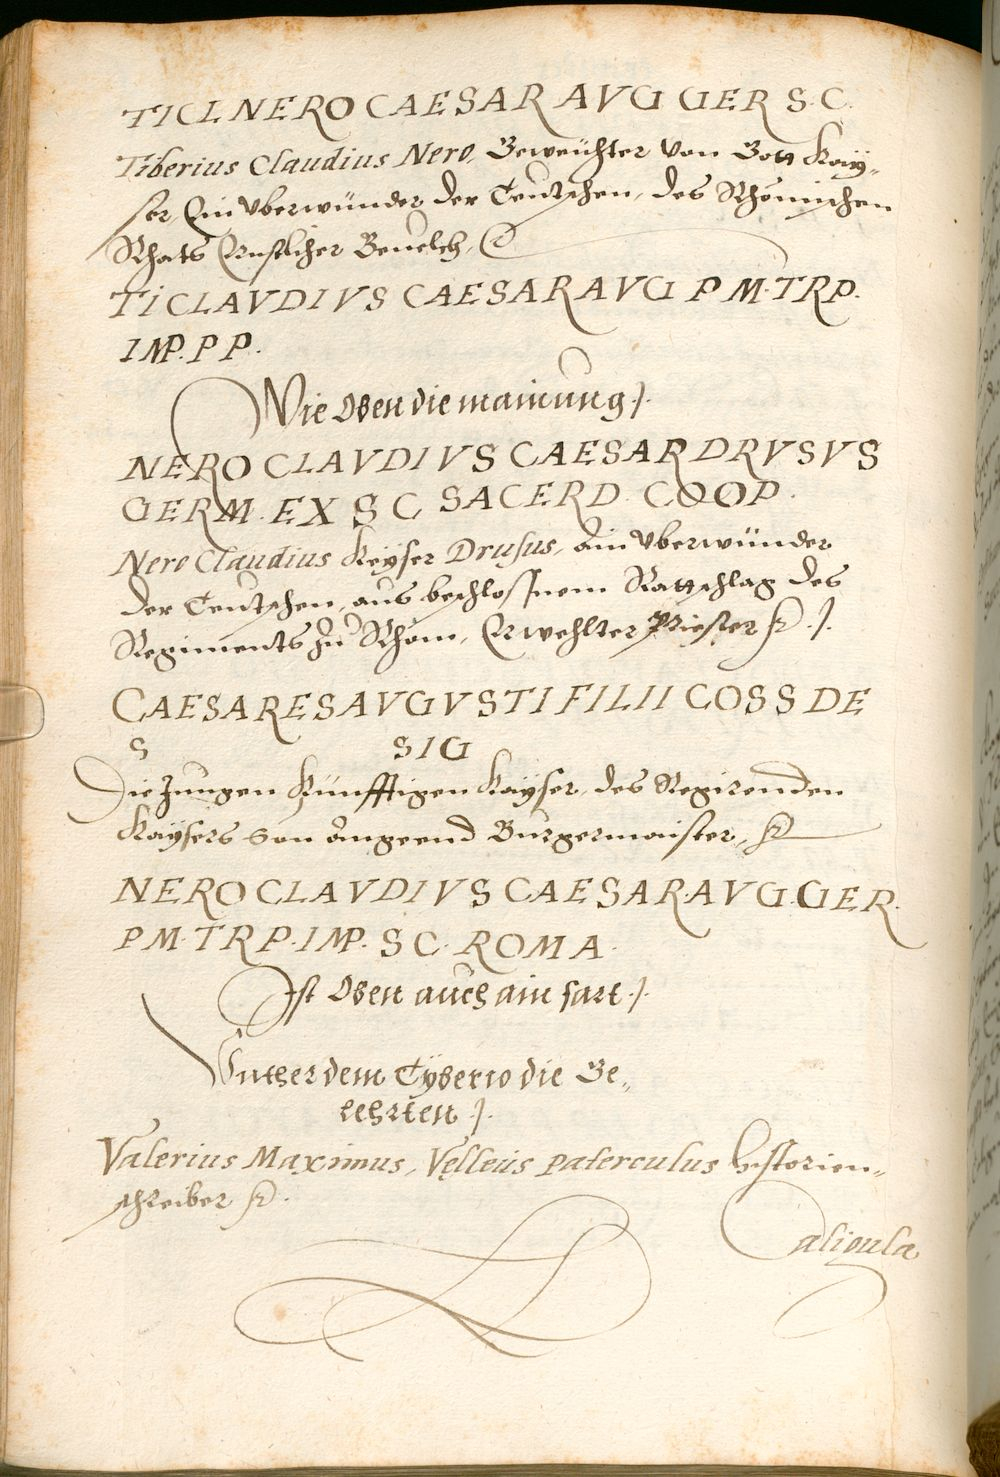 TI CL NERO CAESAR AVG GER S. C.
Tiberius Claudius Nero, Geweichter von Gott Kay„
ser, Ein vberwünder der Teutschen, des Rhömischen
Rhats Ernstlicher Beuelch, 
TI CLAVDIVS CAESAR AVG P M. TRP.
IMP. P P.
Wie Oben die mainung ./.
NERO CLAVDIVS CAESAR DRVSVS
GERM. EX S C SACERD. COOP.
Nero Claudius Keyser Drusus, ain vberwünder
der Teutschen, aus beschlossnem Rattschlag des
Regiments zu Rhom, Erwehlter Priester ./.
CAESARES AVGVSTI FILII COSS DE
S SIG
Die Jungen Künfftigen Kayser, des Regirenden
Kaysers Son Angeend Burgermaister,
NERO CLAVDIVS CAESAR. AVG. GER.
P M. TR P. IMP. S C. ROMA.
Ist Oben auch ain fart ./.
Vnther dem Tyberio die Ge„
lehrten ./.
Valerius Maximus, Velleius paterculus historien„
schreiber
Caligula